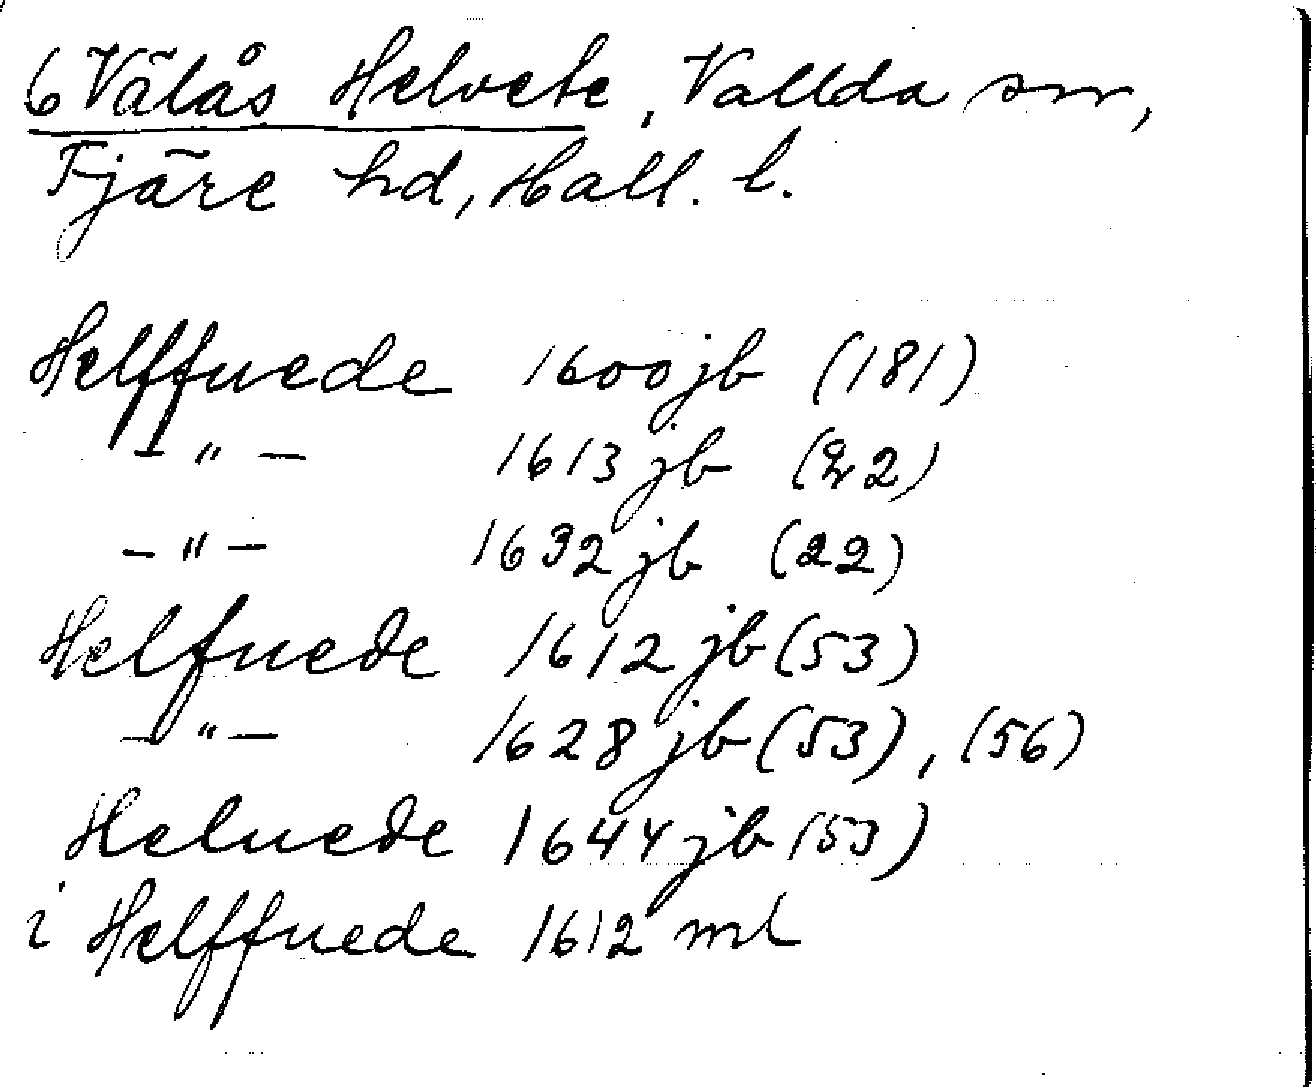 6 Välås Helvete, Vallda sn,
Fjäre hd, Hall. l.
Helffuede 1600 jb (181)
-"- 1613 jb (22)
-"- 1632 jb (22)
Helfuede 1612 jb (53)
-"- 1628 jb (53), (56)
Heluede 1644 jb (53)
i Helffuede 1612 ml